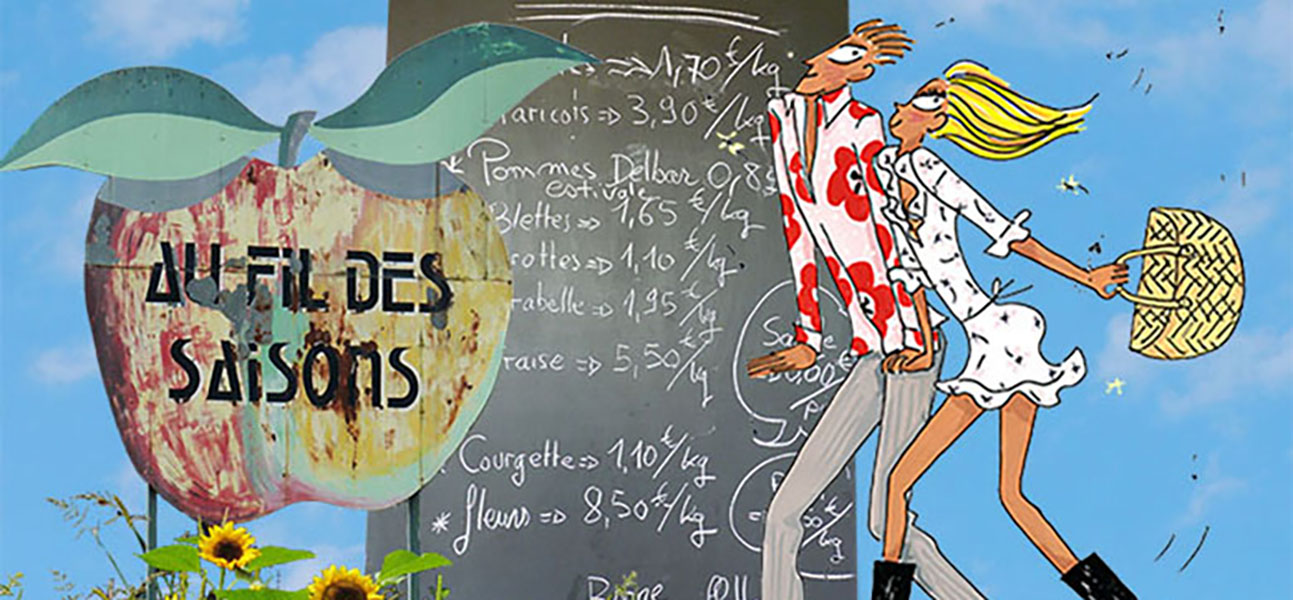 AU FIL DES
SAISONS
1,70 €/kg
aricots => 3,90 €/kg
* Pommes Delbar 0,85
estivale
Blettes => 1,65 €/kg
rottes => 1,10 €/kg
rabelle => 1,95 €/kg
raise => 5,50 €/kg
Courgette => 1,10 €/kg
* fleurs => 8,50 €/kg